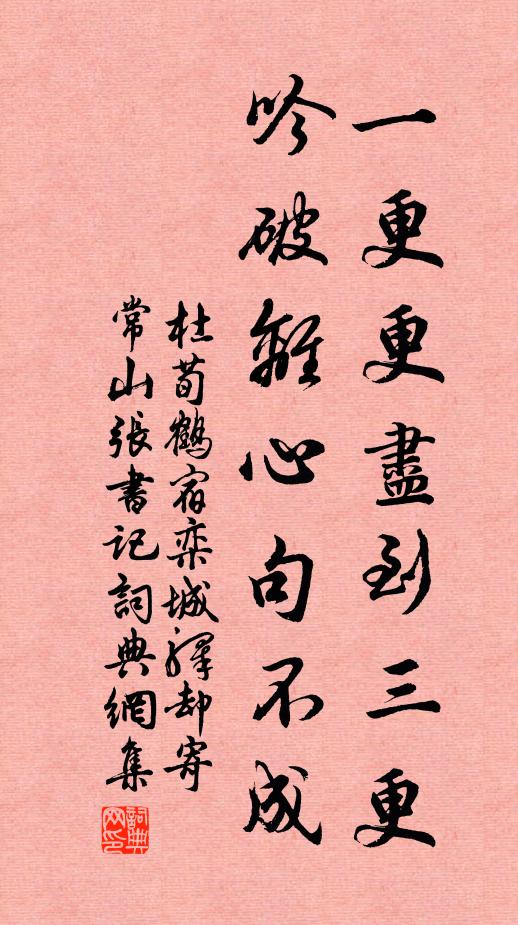 一更更盡到三更
吟破離心句不成
杜荀鶴宿欒城驛却寄
常山張書記詞典網集
詞典
网印